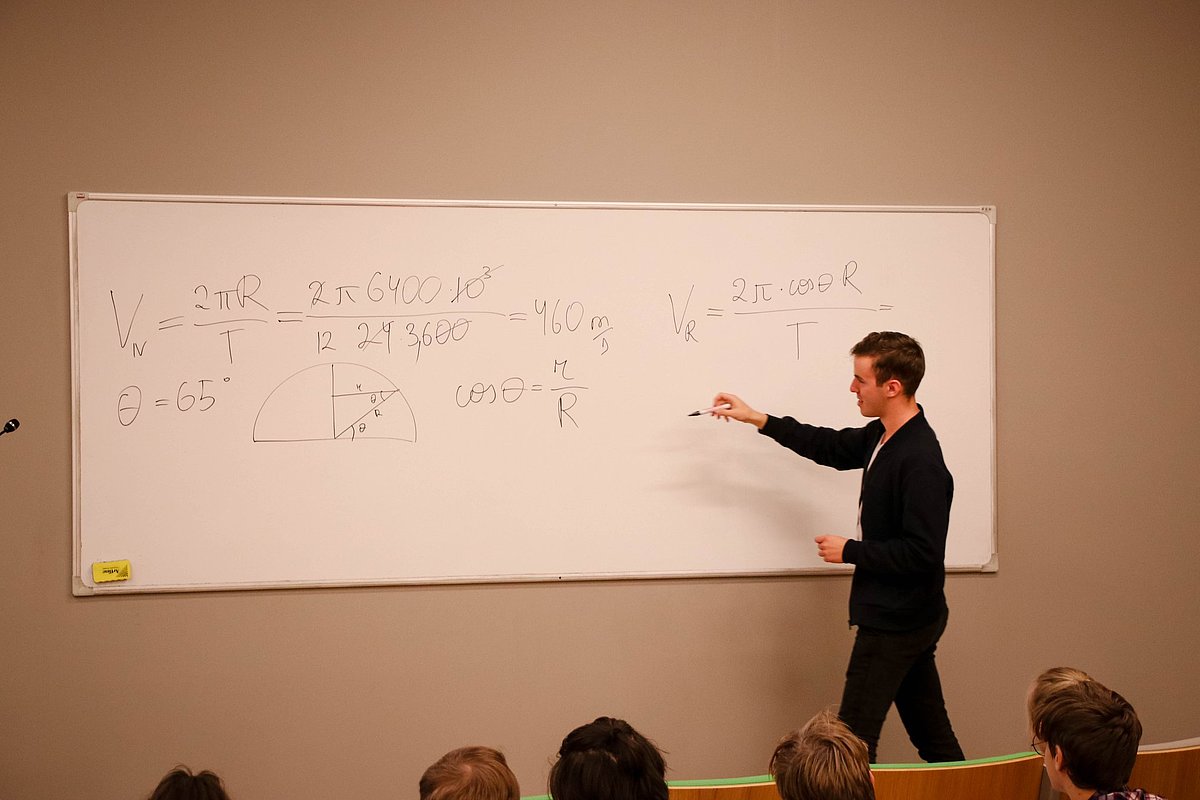 V_N = 2πR / T = 2π 6400·10³ / 12 24·3,600 = 460 m/s
V_R = 2π·cosθ R / T =
θ = 65°
r
θ
R
θ
cosθ = r / R